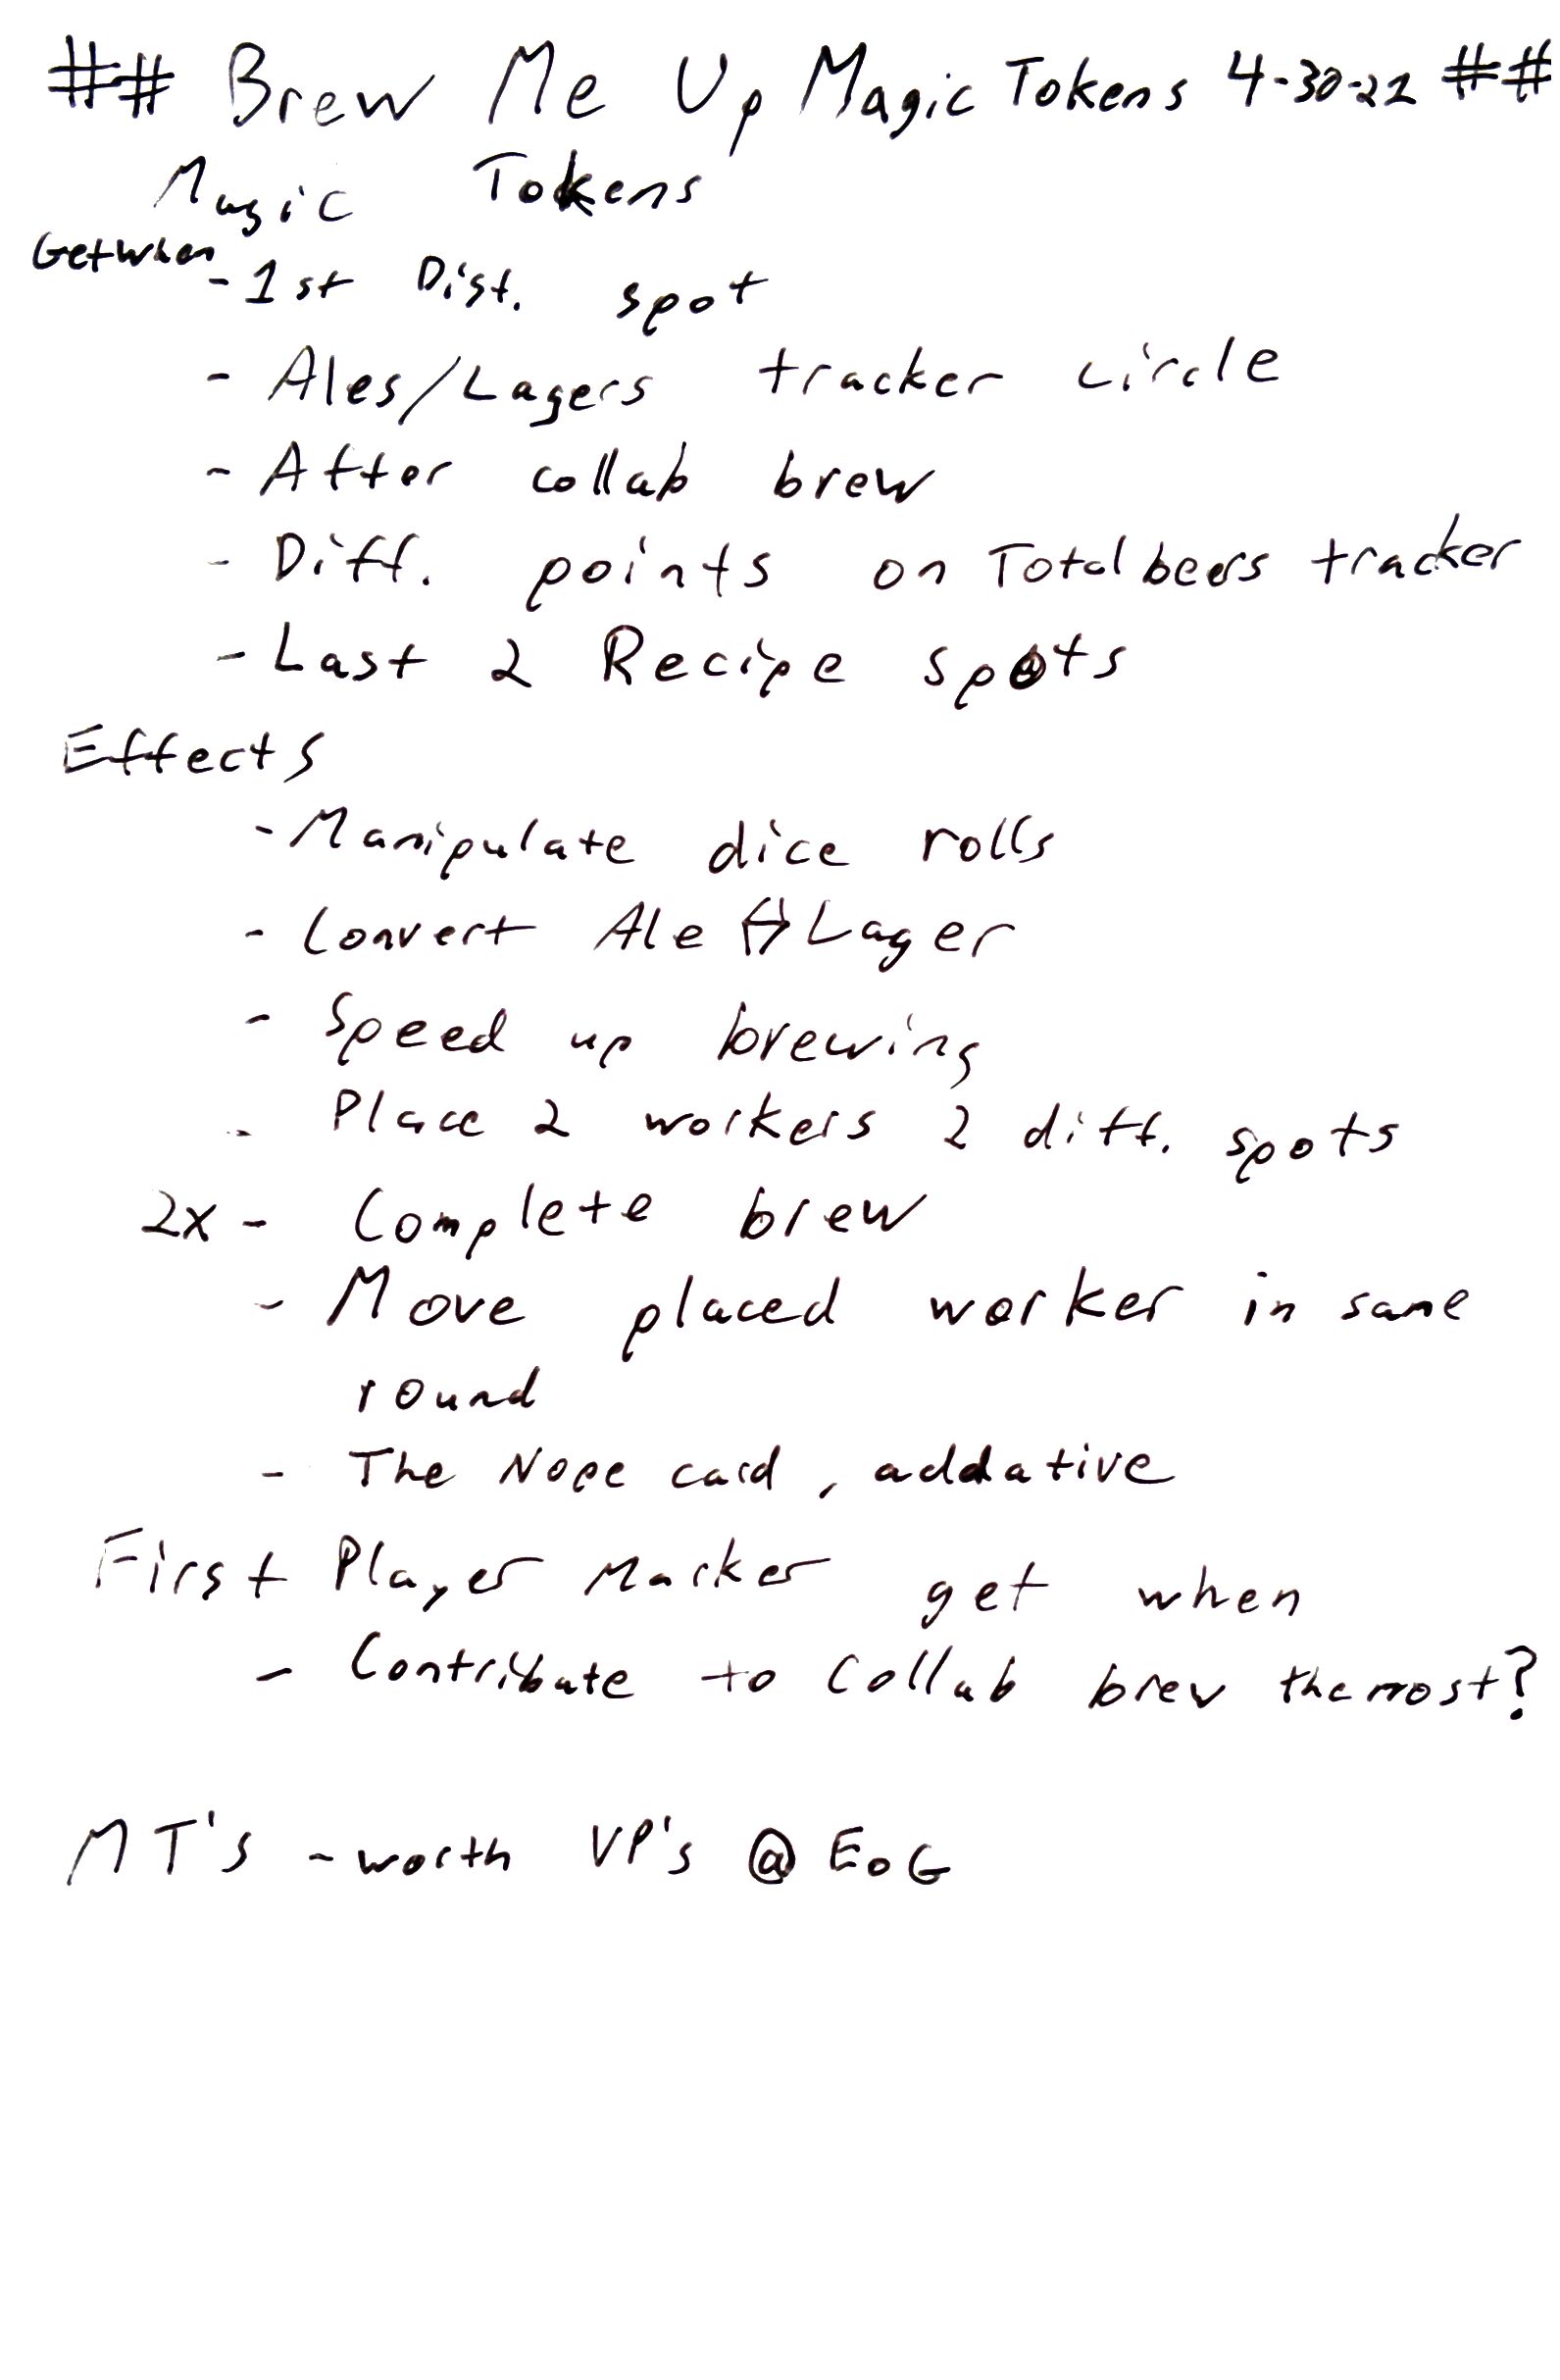 ## Brew Me Up Magic Tokens 4-30-22 ##
Magic Tokens
Get when
- 1st Dist. spot
- Ales/Lagers tracker circle
- After collab brew
- Diff. points on Total beers tracker
- Last 2 Recipe spots
Effects
- Manipulate dice rolls
- Convert Ale ↔ Lager
- Speed up brewing
- Place 2 workers 2 diff. spots
2x - Complete brew
- Move placed worker in same
round
- The Nope card, addative
First Player Marker get when
- Contribute to Collab brew the most?
MT's - worth VP's @ EoG